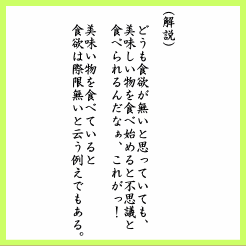 (解説)
どうも食欲が無いと思っていても、
美味しい物を食べ始めると不思議と
食べられるんだなぁ、これがっ!
美味い物を食べていると
食欲は際限無いと云う例えでもある。